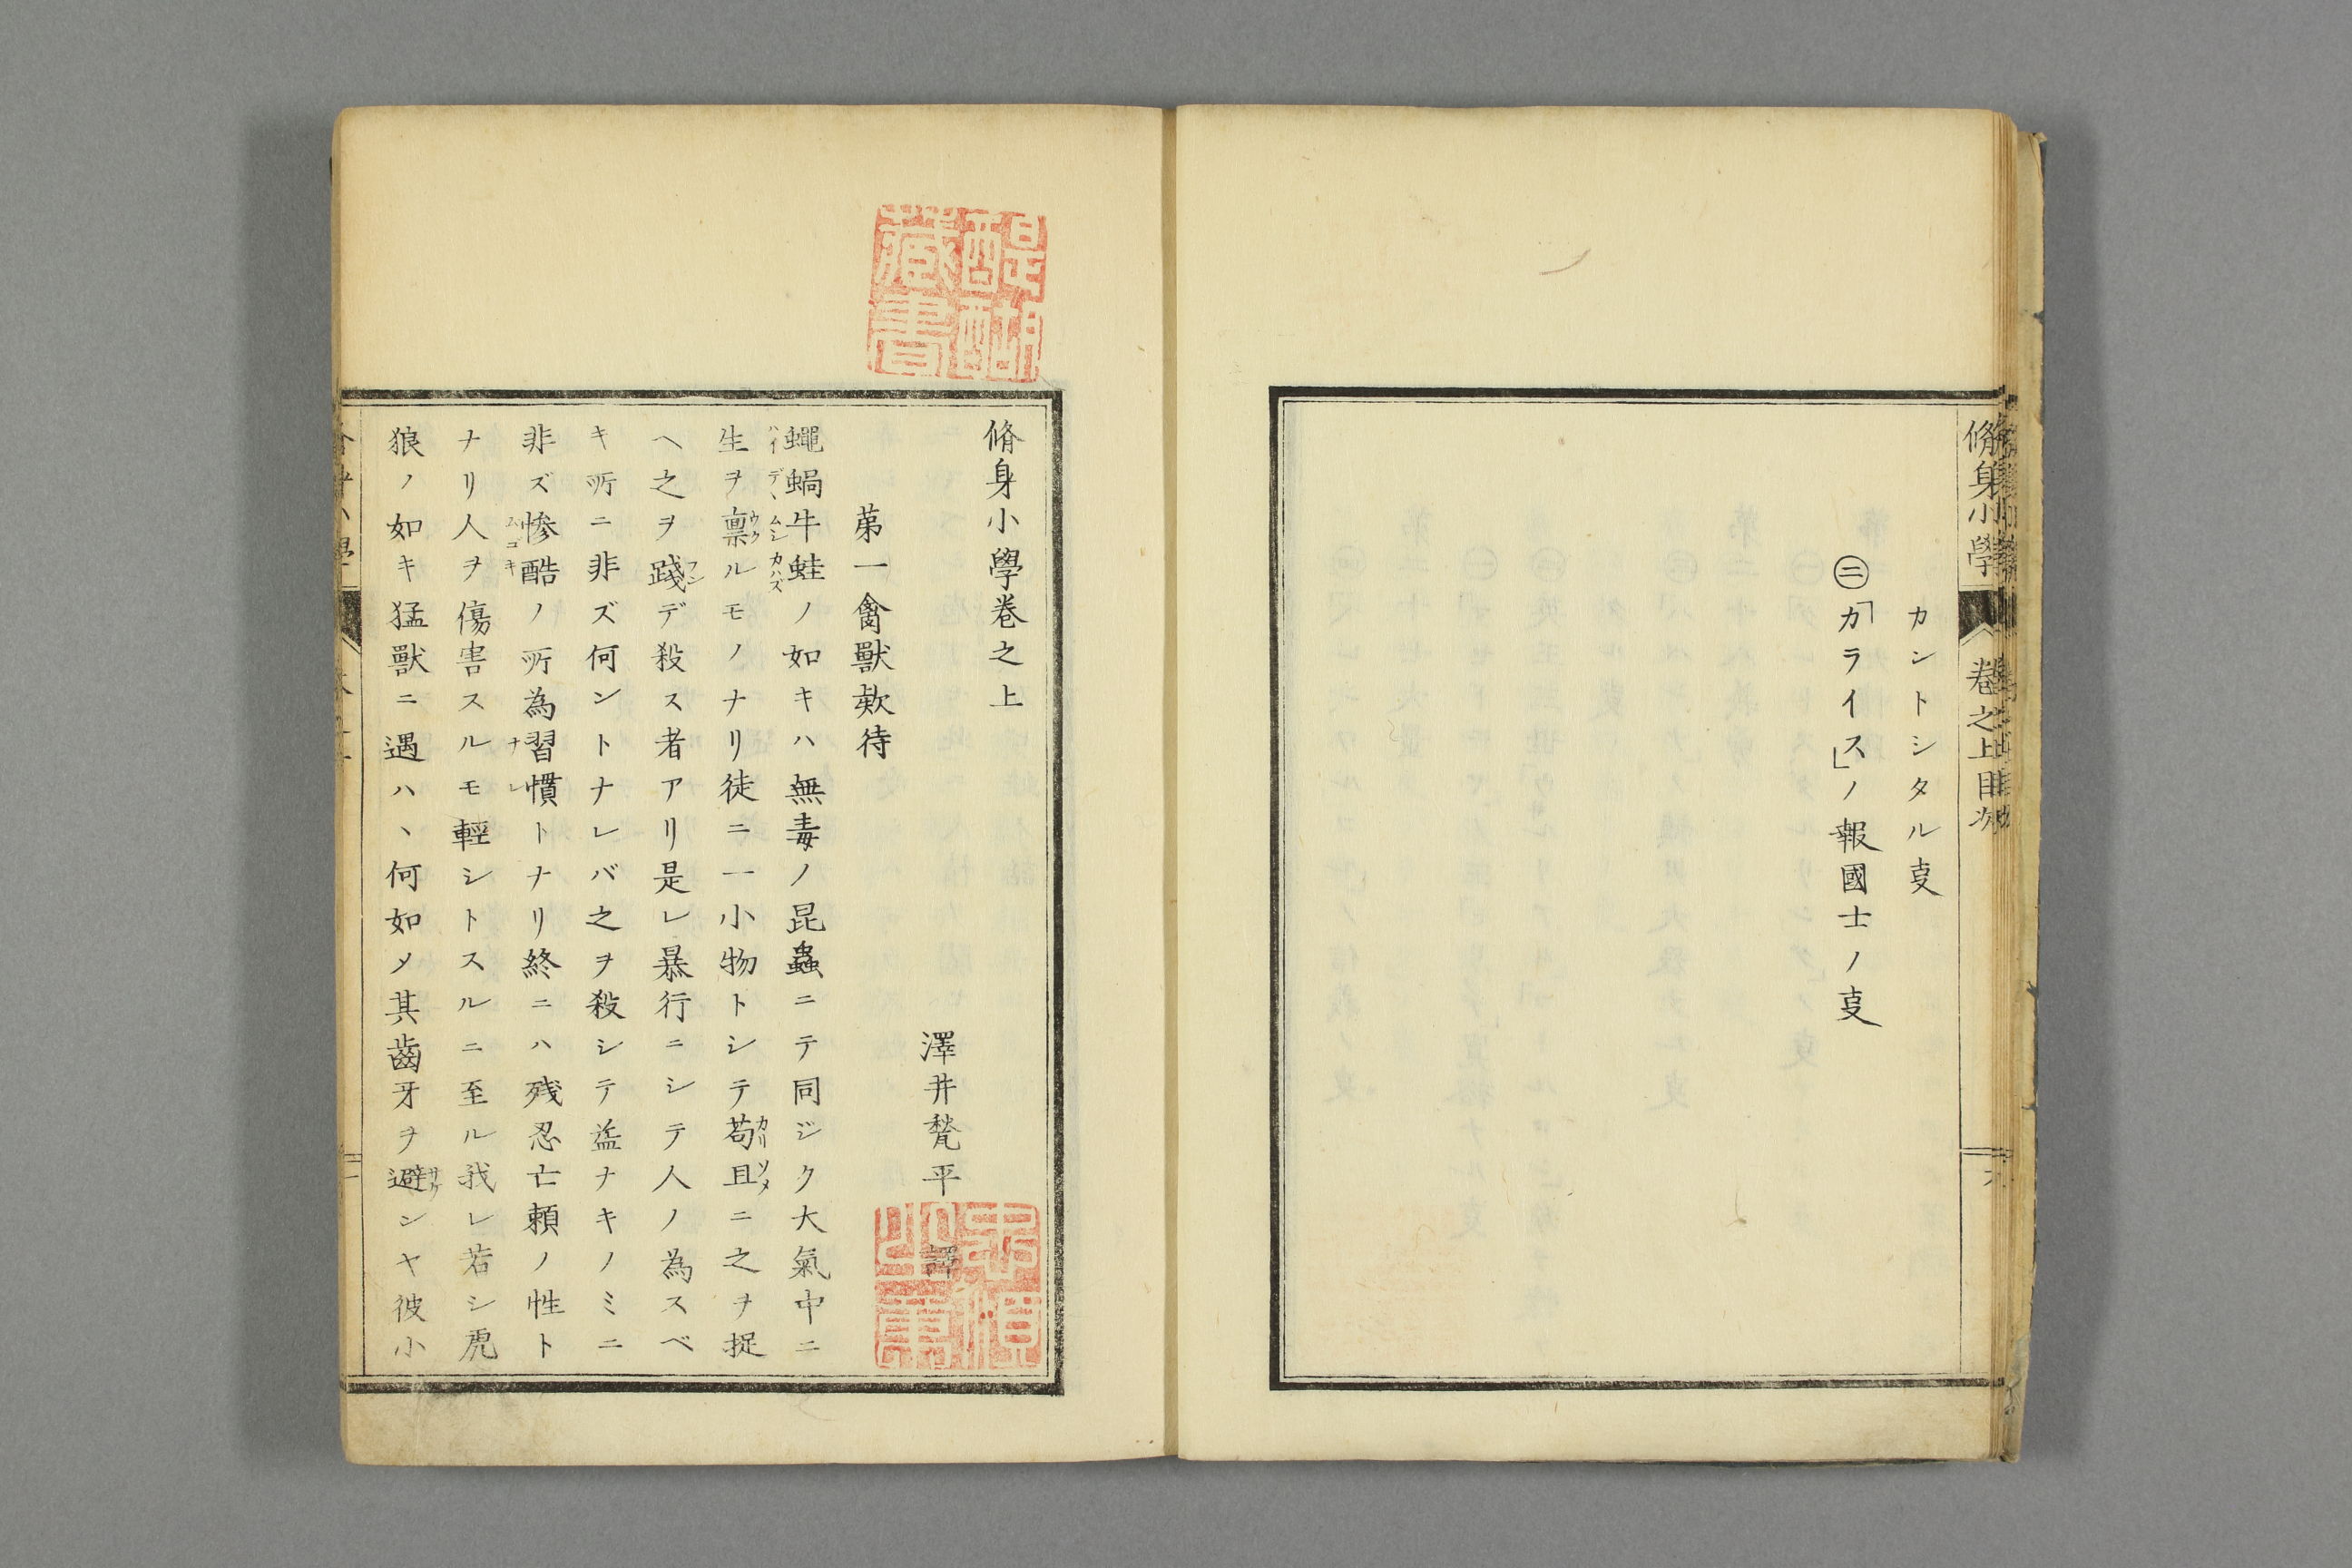 脩身小學 卷之上目次 六
カントシタル叓
㊁「カライス」ノ報國士ノ叓
醍醐藏書
脩身小學卷之上
澤井甃平 譯
第一禽獸欵待
蠅蝸牛蛙ノ如キハ無毒ノ昆蟲ニテ同ジク大氣中ニ
生ヲ禀ルモノナリ徒ニ一小物トシテ苟且ニ之ヲ捉
ヘ之ヲ踐デ殺ス者アリ是レ暴行ニシテ人ノ為スベ
キ所ニ非ズ何ントナレバ之ヲ殺シテ益ナキノミニ
非ズ惨酷ノ所為習慣トナリ終ニハ残忍亡頼ノ性ト
ナリ人ヲ傷害スルモ輕シトスルニ至ル我レ若シ虎
狼ノ如キ猛獸ニ遇ハヽ何如メ其齒牙ヲ避ンヤ彼小